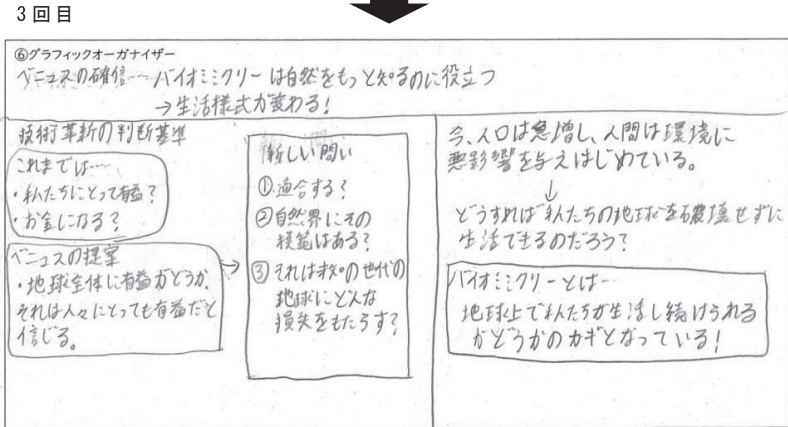 3回目
⑥グラフィックオーガナイザー
ベニュスの確信…バイオミミクリーは自然をもっと知るのに役立つ
→生活様式が変わる!
技術革新の判断基準
これまでは…
・私たちにとって有益?
・お金になる?
ベニュスの提案
・地球全体に有益かどうか、
それは人々にとっても有益だと
信じる。
→
新しい問い
①適合する?
②自然界にその
模範はある?
③それは未知の世代の
地球にどんな
損失をもたらす?
今、人口は急増し、人間は環境に
悪影響を与えはじめている。
↓
どうすれば私たちの地球を破壊せずに
生活できるのだろう?
バイオミミクリーとは…
地球上で私たちが生活し続けられる
かどうかのカギとなっている!